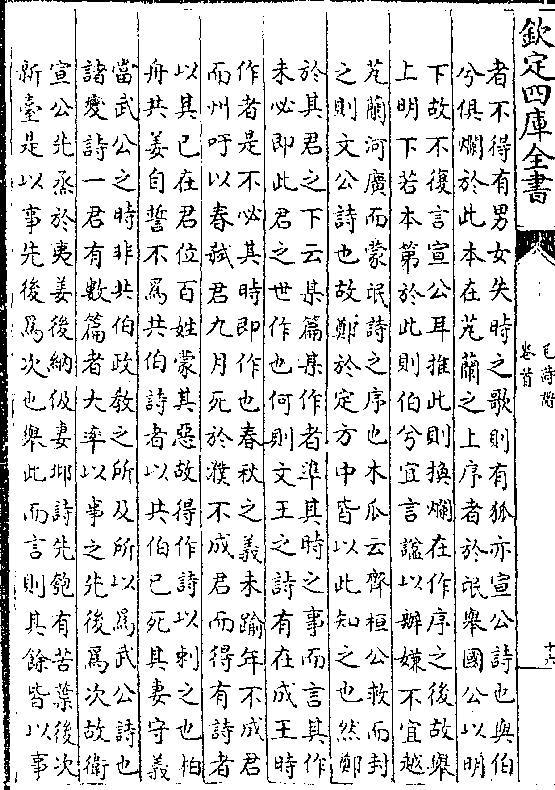 欽定四庫全書
毛詩譜
卷首
十六
者不得有男女失時之歌則有狐亦宣公詩也與伯
兮俱爛於此本在芄蘭之上序者於氓舉國公以明
下故不復言宣公耳推此則換爛在作序之後故舉
上明下若本第於此則伯兮宜言諡以辨嫌不宜越
芄蘭河廣而蒙氓詩之序也木瓜云齊桓公救而封
之則文公詩也故鄭於定方中皆以此知之也然鄭
於其君之下云某篇某作者準其時之事而言其作
未必即此君之世作也何則文王之詩有在成王時
作者是不必其時即作也春秋之義未踰年不成君
而州吁以春弑君九月死於濮不成君而得有詩者
以其已在君位百姓蒙其惡故得作詩以刺之也柏
舟共姜自誓不爲共伯詩者以共伯已死其妻守義
當武公之時非共伯政教之所及所以爲武公詩也
諸變詩一君有數篇者大率以事之先後爲次故衛
宣公先烝於夷姜後納伋妻邶詩先匏有苦葉後次
新臺是以事先後爲次也舉此而言則其餘皆以事